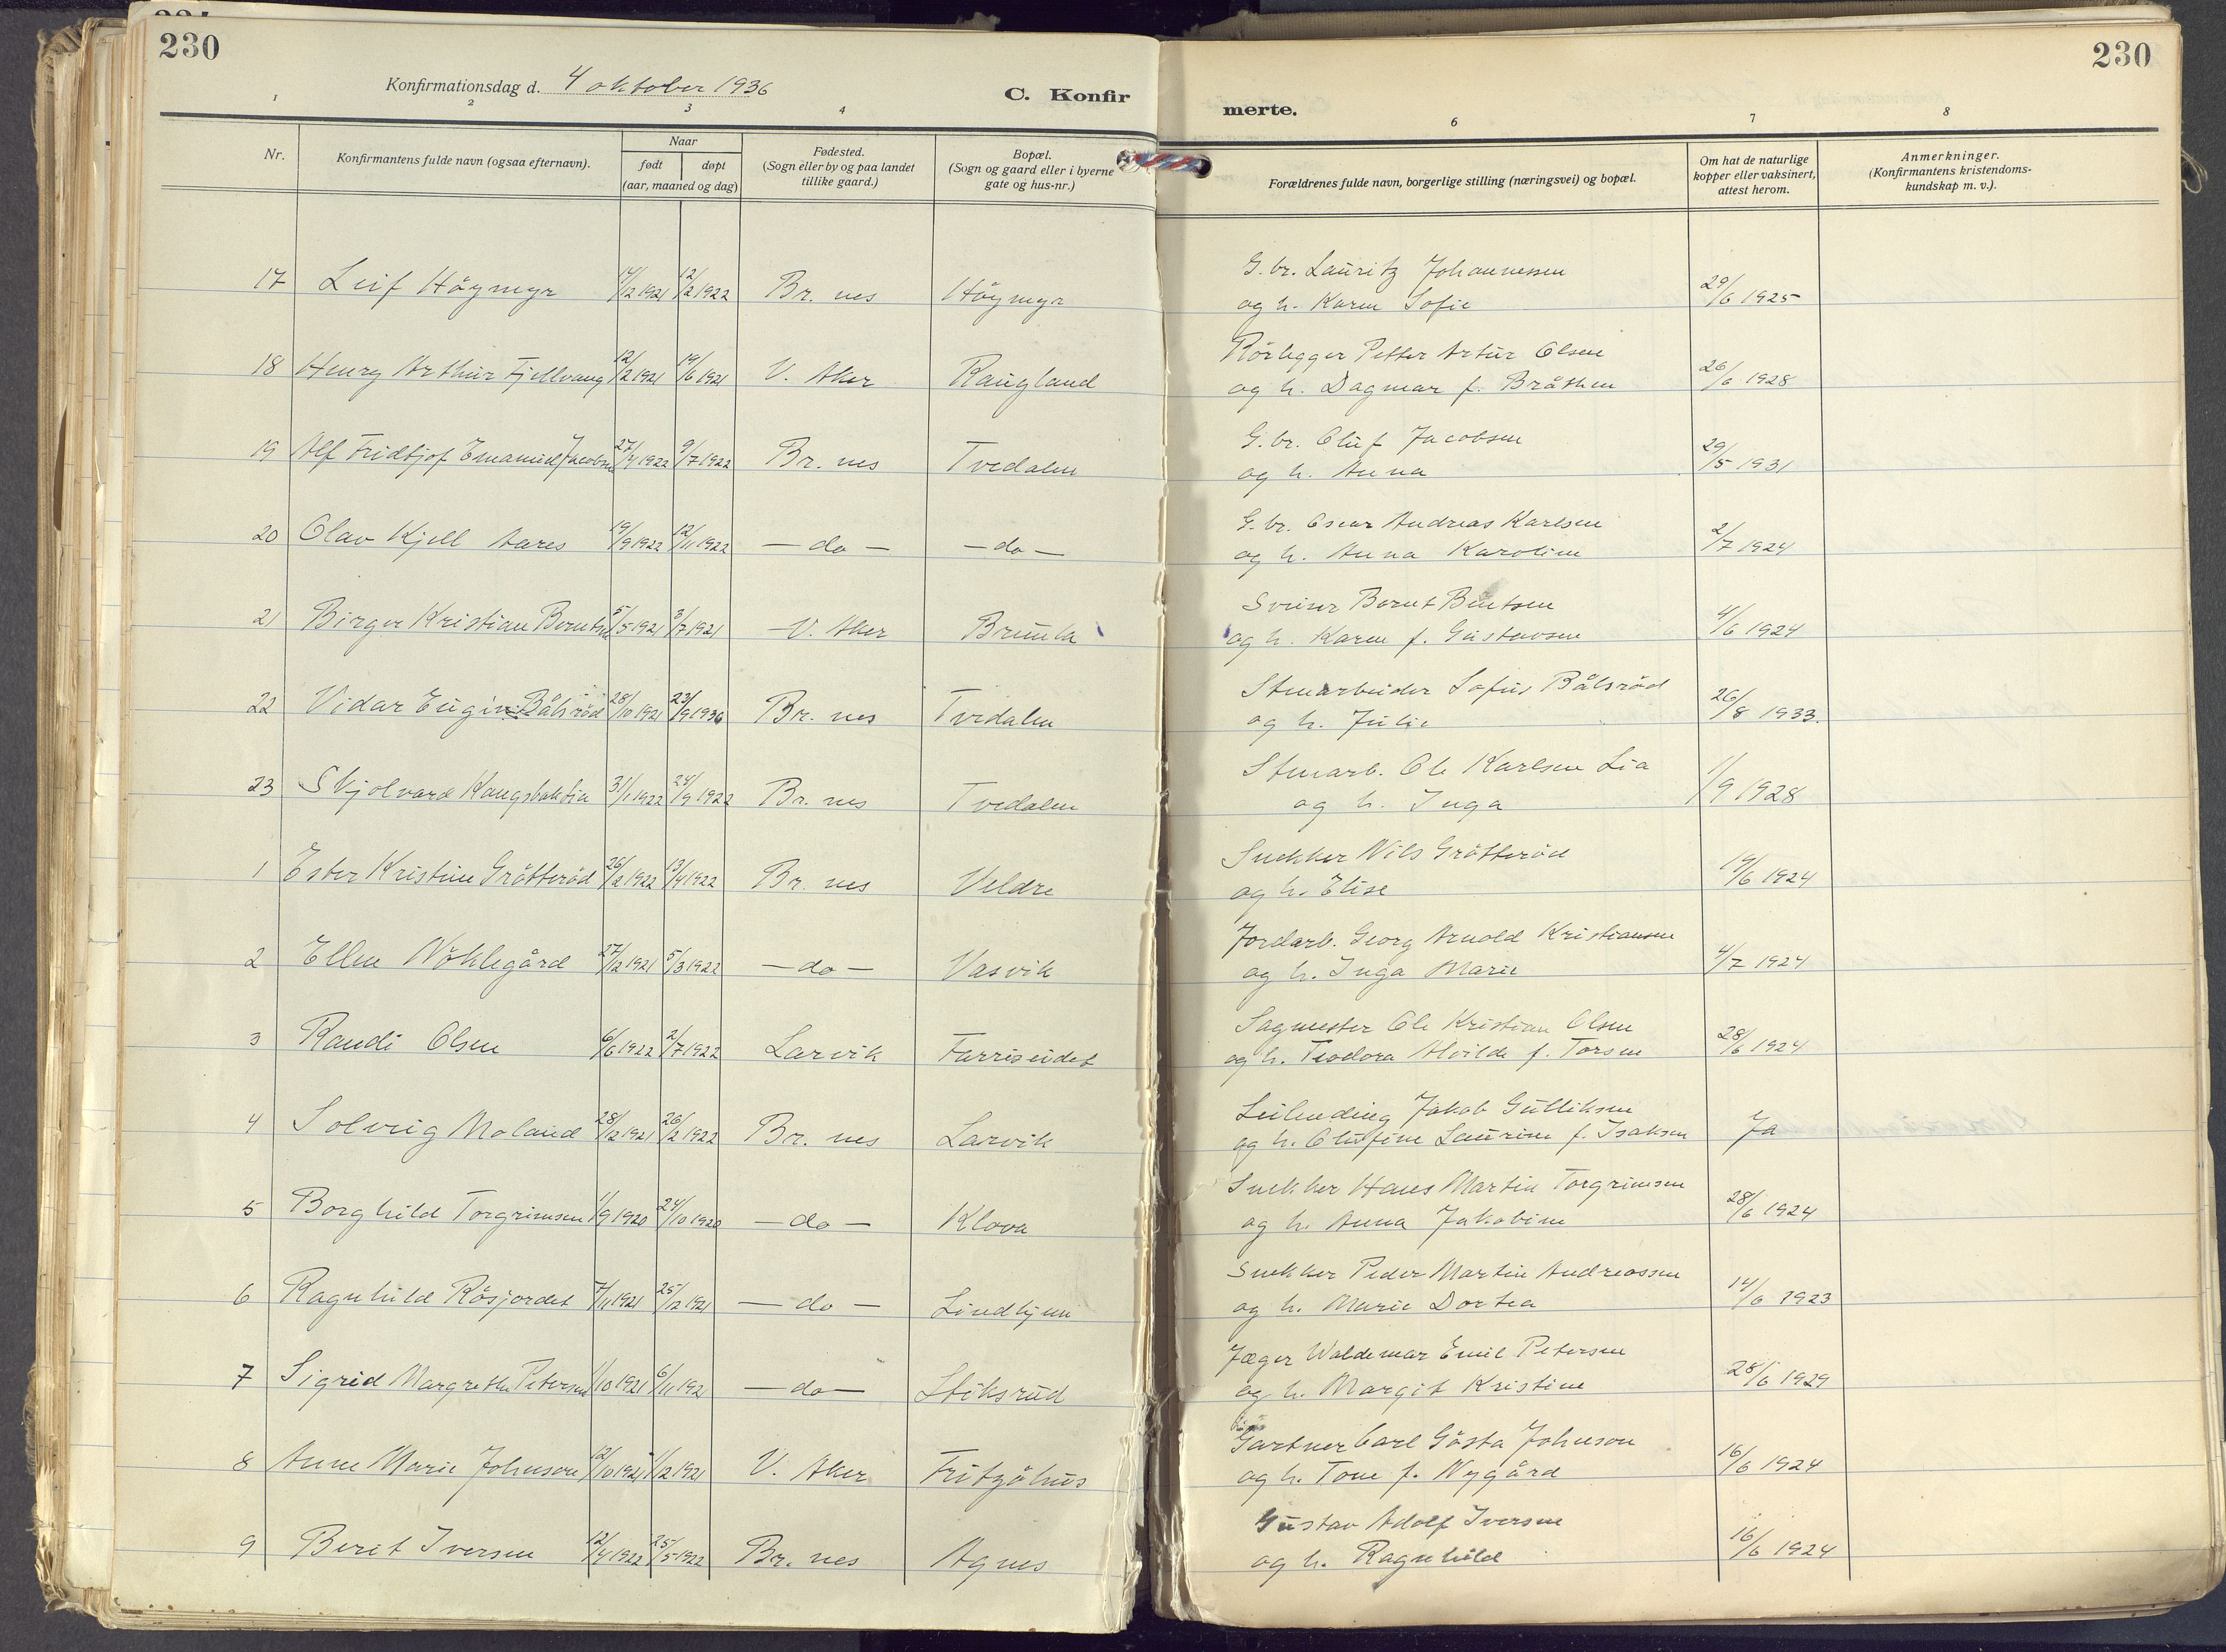 230
230
Konfirmationsdag d. 4 oktober 1936
C. Konfir
merte.
1 2 3 4 6 7 8
Nr.
Konfirmantens fulde navn (ogsaa efternavn).
Naar
født døpt
(aar, maaned og dag)
Fødested.
(Sogn eller by og paa landet
tillike gaard.)
Bopæl.
(Sogn og gaard eller i byerne
gate og hus-nr.)
Forældrenes fulde navn, borgerlige stilling (næringsvei) og bopæl.
Om hat de naturlige
kopper eller vaksinert,
attest herom.
Anmerkninger.
(Konfirmantens kristendoms-
kundskap m. v.).
G. br. Lauritz Johannessen
17 Leif Högmyr /12 1921 12/2 1922 Br. nes Högmyr og h. Karen Sofie 29/6 1925
Rörlegger Petter Artur Olsen
18 Henry Arthur Fjellvang 12/2 1921 19/6 1921 V. Aker Raugland og h. Dagmar f. Bråthen 26/6 1928
G. br. Oluf Jacobsen
19 Alf Fridtjof Emanuel Jacobsen 27/4 1922 9/7 1922 Br. nes Tvedalen og h. Anna 29/5 1931
G. br. Oscar Andreas Karlsen
20 Olav Kjell Aares 19/9 1922 12/11 1922 – do – – do – og h. Anna Karoline 2/7 1924
Sveiser Bernt Bentsen
21 Birger Kristian Berntsen 5/5 1921 3/7 1921 V. Aker Brunla og h. Karen f. Gustavsen 4/6 1924
Stenarbeider Sofus Bålsröd
22 Vidar Eugin Bålsröd 28/10 1921 23/9 1936 Br. nes Tvedalen og h. Julie 26/8 1933.
Stenarb. Ole Karlsen Lia
23 Skjolvard Kongsbakken 31/1 1922 24/9 1922 Br. nes Tvedalen og h. Inga 1/9 1928
Snekker Nils Grötteröd
1 Ester Kristine Grötteröd 26/2 1922 13/4 1922 Br. nes Veldre og h. Elise 19/6 1924
Jordarb. Georg Arnold Kristiansen
2 Ellen Nöklegård 27/12 1921 5/3 1922 – do – Vasvik og h. Inga Marie 4/7 1924
Sagmester Ole Kristian Olsen
3 Randi Olsen 6/6 1922 2/7 1922 Larvik Farriseidet og h. Teodora Alvilde f. Torsen 28/6 1924
Leilending Jakob Gulliksen
4 Solveig Moland 28/12 1921 26/2 1922 Br. nes Larvik og h. Olufine Laurine f. Isaksen Ja
Snekker Hans Martin Torgrimsen
5 Borghild Torgrimsen 1/9 1920 24/10 1920 – do – Klova og h. Anna Jakobine 28/6 1924
Snekker Peder Martin Andreassen
6 Ragnhild Råsjordet 7/11 1921 25/12 1921 – do – Lindhjem og h. Marie Dortea 14/6 1923
Jæger Waldemar Emil Petersen
7 Sigrid Margrethe Petersen 1/10 1921 6/11 192 – do – Stiksrud og h. Margit Kristine 28/6 1929
Gartner Carl Gösta Johnson
8 Anne Marie Johnson 12/10 1921 /12 1921 V. Aker Fritzöhus og h. Tone f. Nygård 16/6 1924
Gustav Adolf Iversen
9 Berit Iversen 12/4 1922 25/5 1922 Br. nes Agnes og h. Ragnhild 16/6 1924